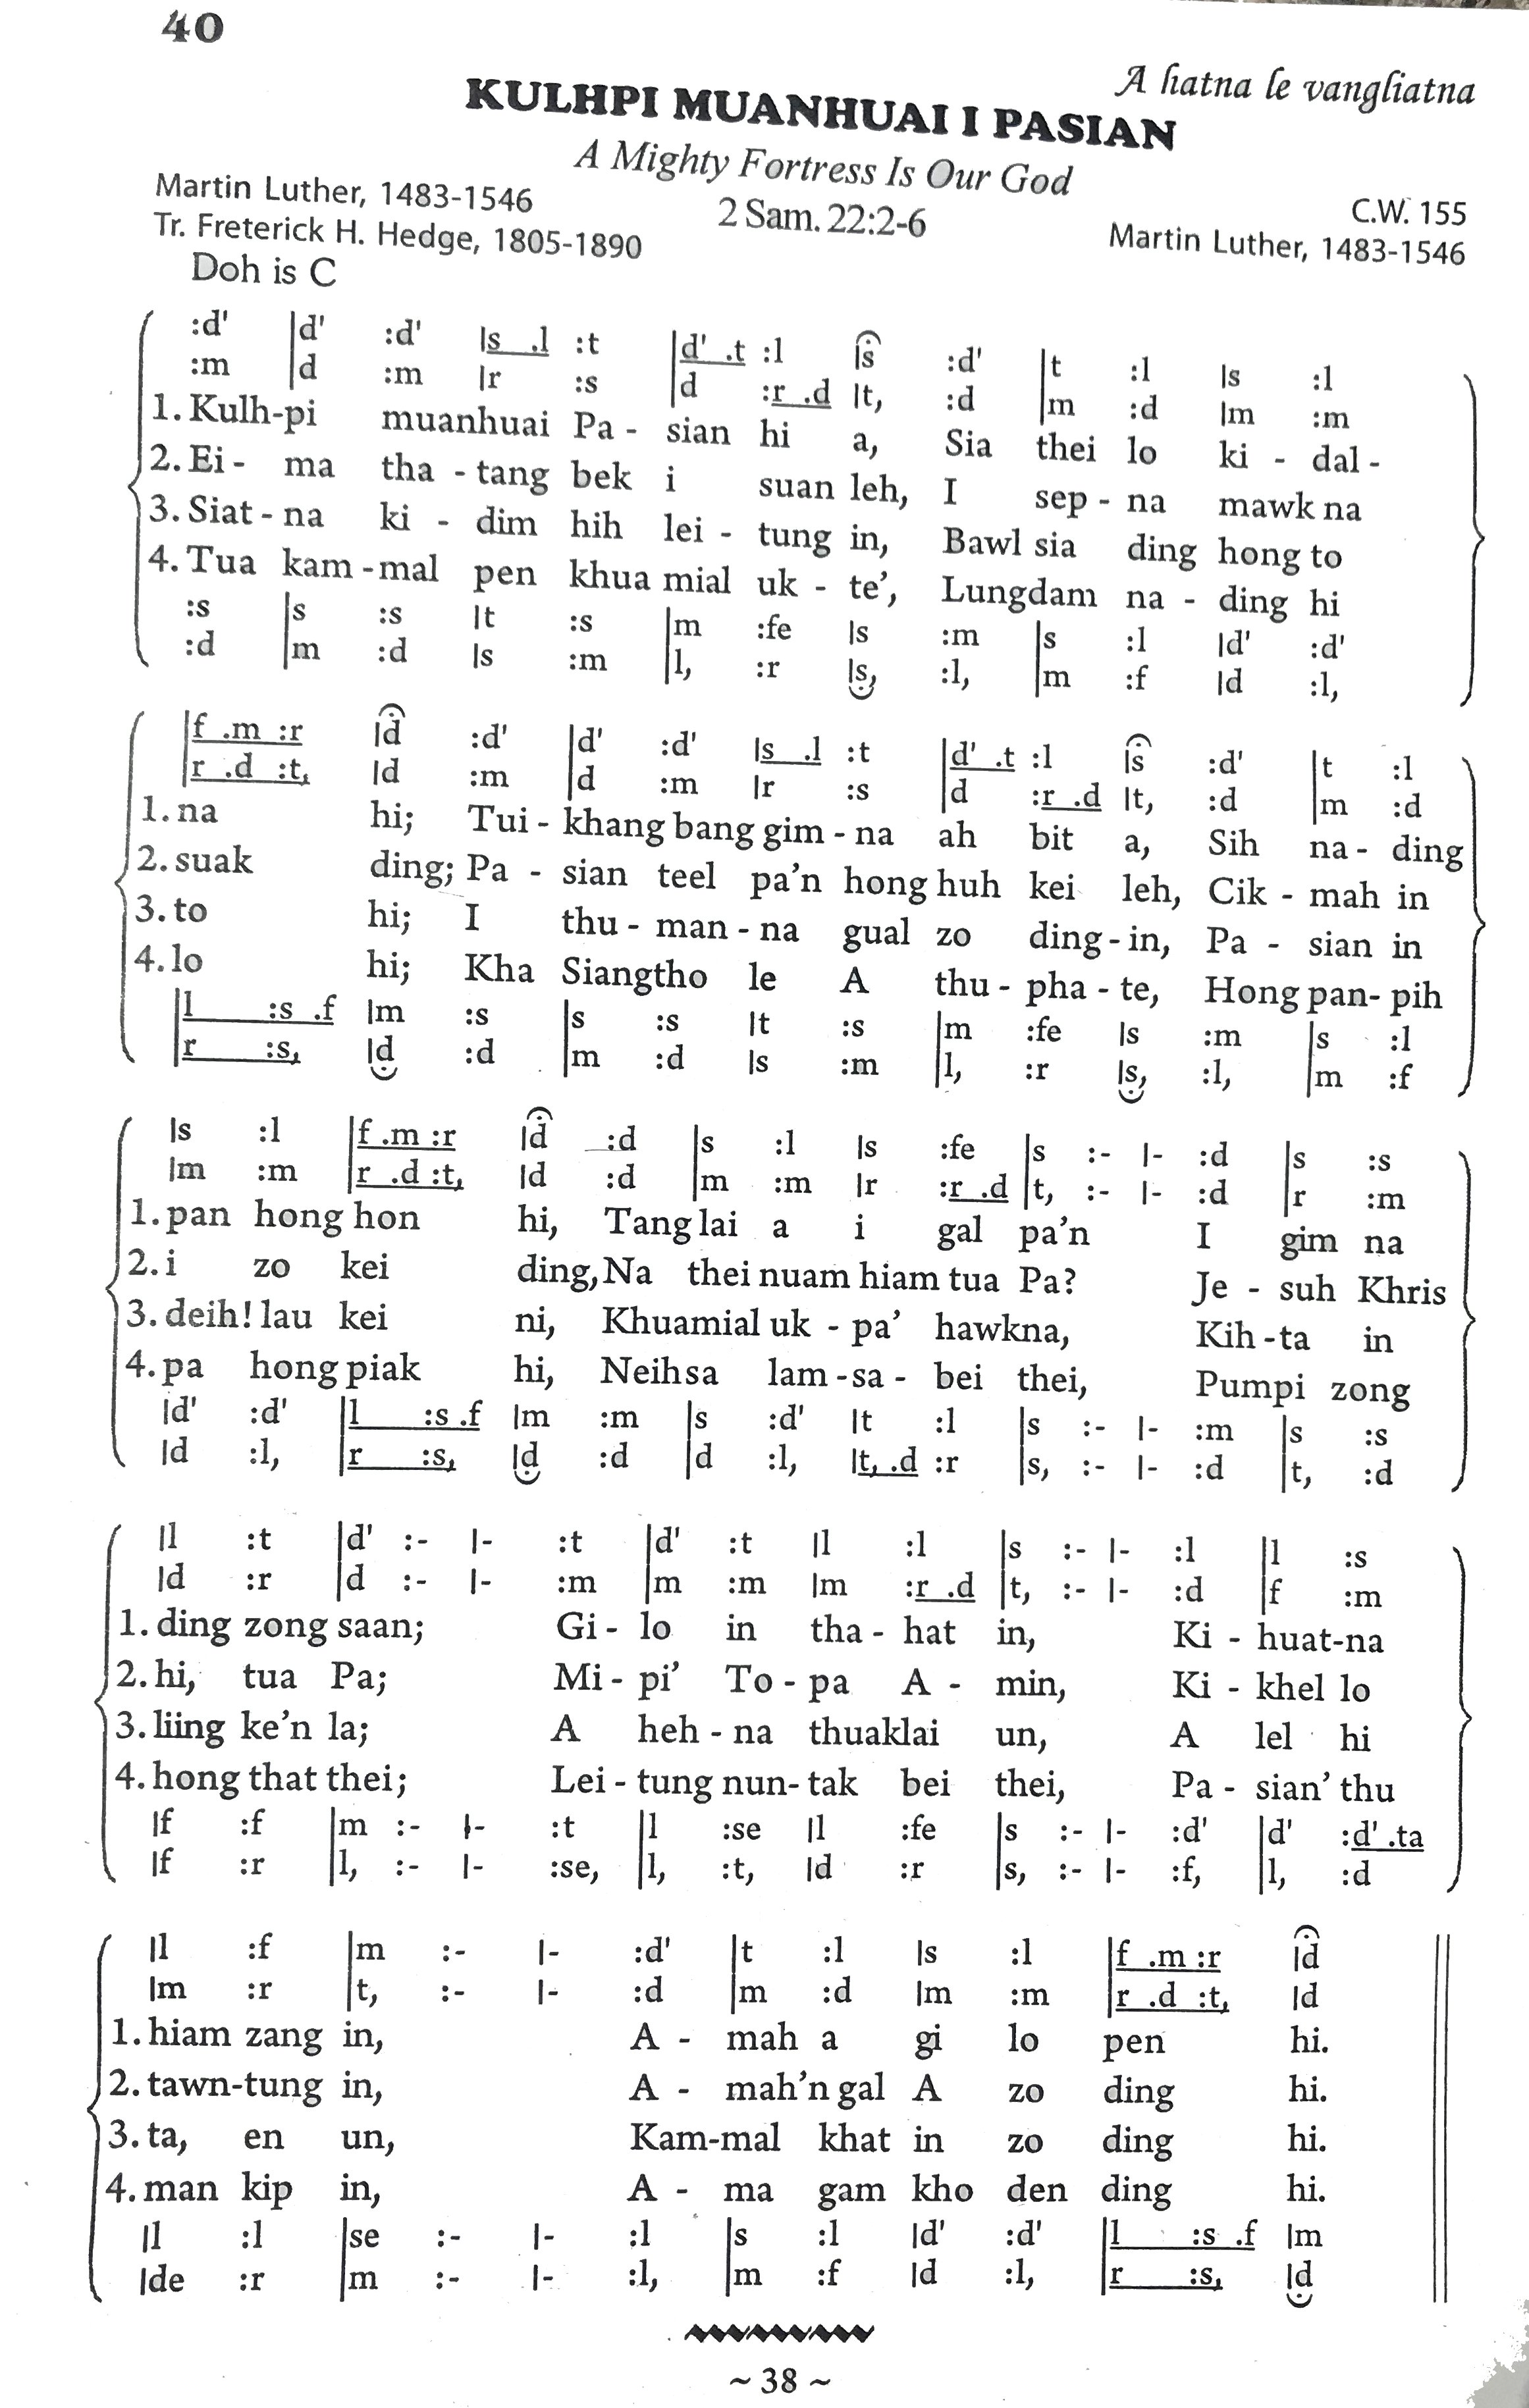 40
A hatna le vangliatna
KULHPI MUANHUAI I PASIAN
A Mighty Fortress Is Our God
Martin Luther, 1483-1546
2 Sam. 22:2-6
C.W. 155
Tr. Freterick H. Hedge, 1805-1890
Martin Luther, 1483-1546
Doh is C
:d' |d' :d' |s .l :t |d' .t :l |s :d' |t :l |s :l
:m |d :m |r :s |d :r .d |t, :d |m :d |m :m
1. Kulh-pi muanhuai Pa - sian hi a, Sia thei lo ki - dal -
2. Ei - ma tha - tang bek i suan leh, I sep - na mawk na
3. Siat - na ki - dim hih lei - tung in, Bawl sia ding hong to
4. Tua kam - mal pen khua mial uk - te', Lungdam na - ding hi
:s |s :s |t :s |m :fe |s :m |s :l |d' :d'
:d |m :d |s :m |l, :r |s, :l, |m :f |d :l,
|f .m :r |d :d' |d' :d' |s .l :t |d' .t :l |s :d' |t :l
|r .d :t, |d :m |d :m |r :s |d :r .d |t, :d |m :d
1. na hi; Tui - khang bang gim - na ah bit a, Sih na - ding
2. suak ding; Pa - sian teel pa'n hong huh kei leh, Cik - mah in
3. to hi; I thu - man - na gual zo ding - in, Pa - sian in
4. lo hi; Kha Siangtho le A thu - pha - te, Hong pan- pih
|l :s .f |m :s |s :s |t :s |m :fe |s :m |s :l
|r :s, |d :d |m :d |s :m |l, :r |s, :l, |m :f
|s :l |f .m :r |d :d |s :l |s :fe |s :- |- :d |s :s
|m :m |r .d :t, |d :d |m :m |r :r .d |t, :- |- :d |r :m
1. pan hong hon hi, Tang lai a i gal pa'n I gim na
2. i zo kei ding, Na thei nuam hiam tua Pa? Je - suh Khris
3. deih! lau kei ni, Khuamial uk - pa' hawkna, Kih -ta in
4. pa hong piak hi, Neihsa lam -sa - bei thei, Pumpi zong
|d' :d' |l :s .f |m :m |s :d' |t :l |s :- |- :m |s :s
|d :l, |r :s, |d :d |d :l, |t, .d :r |s, :- |- :d |t, :d
|l :t |d' :- |- :t |d' :t |l :l |s :- |- :l |l :s
|d :r |d :- |- :m |m :m |m :r .d |t, :- |- :d |f :m
1. ding zong saan; Gi - lo in tha - hat in, Ki - huat-na
2. hi, tua Pa; Mi - pi' To - pa A - min, Ki - khel lo
3. liing ke'n la; A heh - na thuaklai un, A lel hi
4. hong that thei; Lei - tung nun- tak bei thei, Pa - sian' thu
|f :f |m :- |- :t |l :se |l :fe |s :- |- :d' |d' :d' .ta
|f :r |l, :- |- :se, |l, :t, |d :r |s, :- |- :f, |l, :d
|l :f |m :- |- :d' |t :l |s :l |f .m :r |d
|m :r |t, :- |- :d |m :d |m :m |r .d :t, |d
1. hiam zang in, A - mah a gi lo pen hi.
2. tawn-tung in, A - mah'n gal A zo ding hi.
3. ta, en un, Kam-mal khat in zo ding hi.
4. man kip in, A - ma gam kho den ding hi.
|l :l |se :- |- :l |s :l |d' :d' |l :s .f |m
|de :r |m :- |- :l, |m :f |d :l, |r :s, |d
~ 38 ~